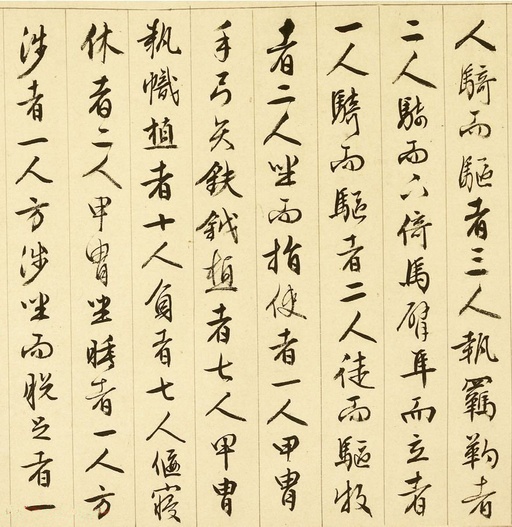 人騎而驅者三人執羈靮者
二人騎而下倚馬臂隼而立者
一人騎而驅者二人徒而驅牧
者二人坐而指使者一人甲冑
手弓矢鈇鉞植者七人甲冑
執幟植者十人負者七人偃寢
休者二人甲冑坐睡者一人方
涉者一人方涉坐而脫足者一